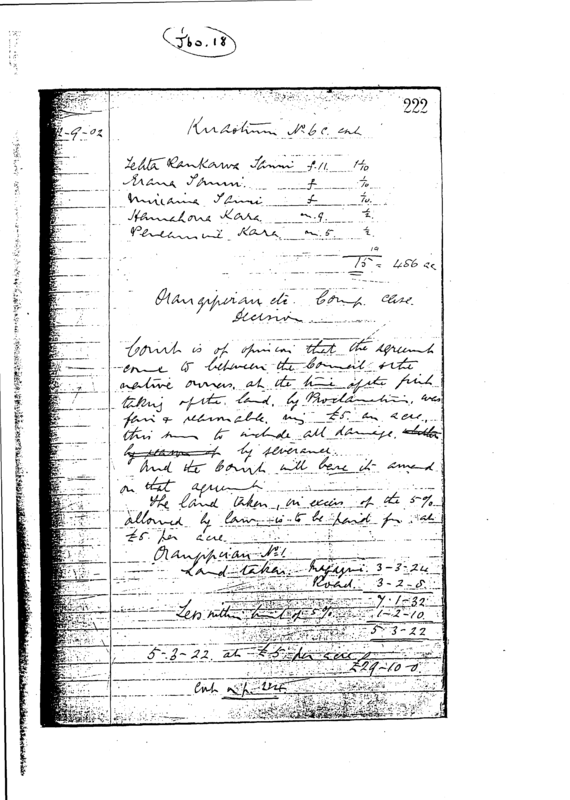 J60.18
222
-9-02
No 6C cont
f. 11. 1/10
Erana f 1/10
f 1/10
Hamahona Kara m. 9. 1/2
Kara m. 5 1/2
15 = 486 ac
Orangipirau etc. Comp. case.
Decision
Court is of opinion that the agreement
come to between the Council & the
native owners, at the time of the first
taking of the land, by Proclamation, was
fair & reasonable, viz £5 an acre,
this sum to include all damage,
by reason of by severance.
And the Court will base its award
on that agreement
The land taken, in excess of the 5%
allowed by law is to be paid for at
£5 per acre.
Orangipirau No 1
Land taken 3-3-24
Road 3-2-8
7-1-32
Less within limit of 5% 1-2-10
5-3-22
5-3-22 at £5 per acre
£29-10-0